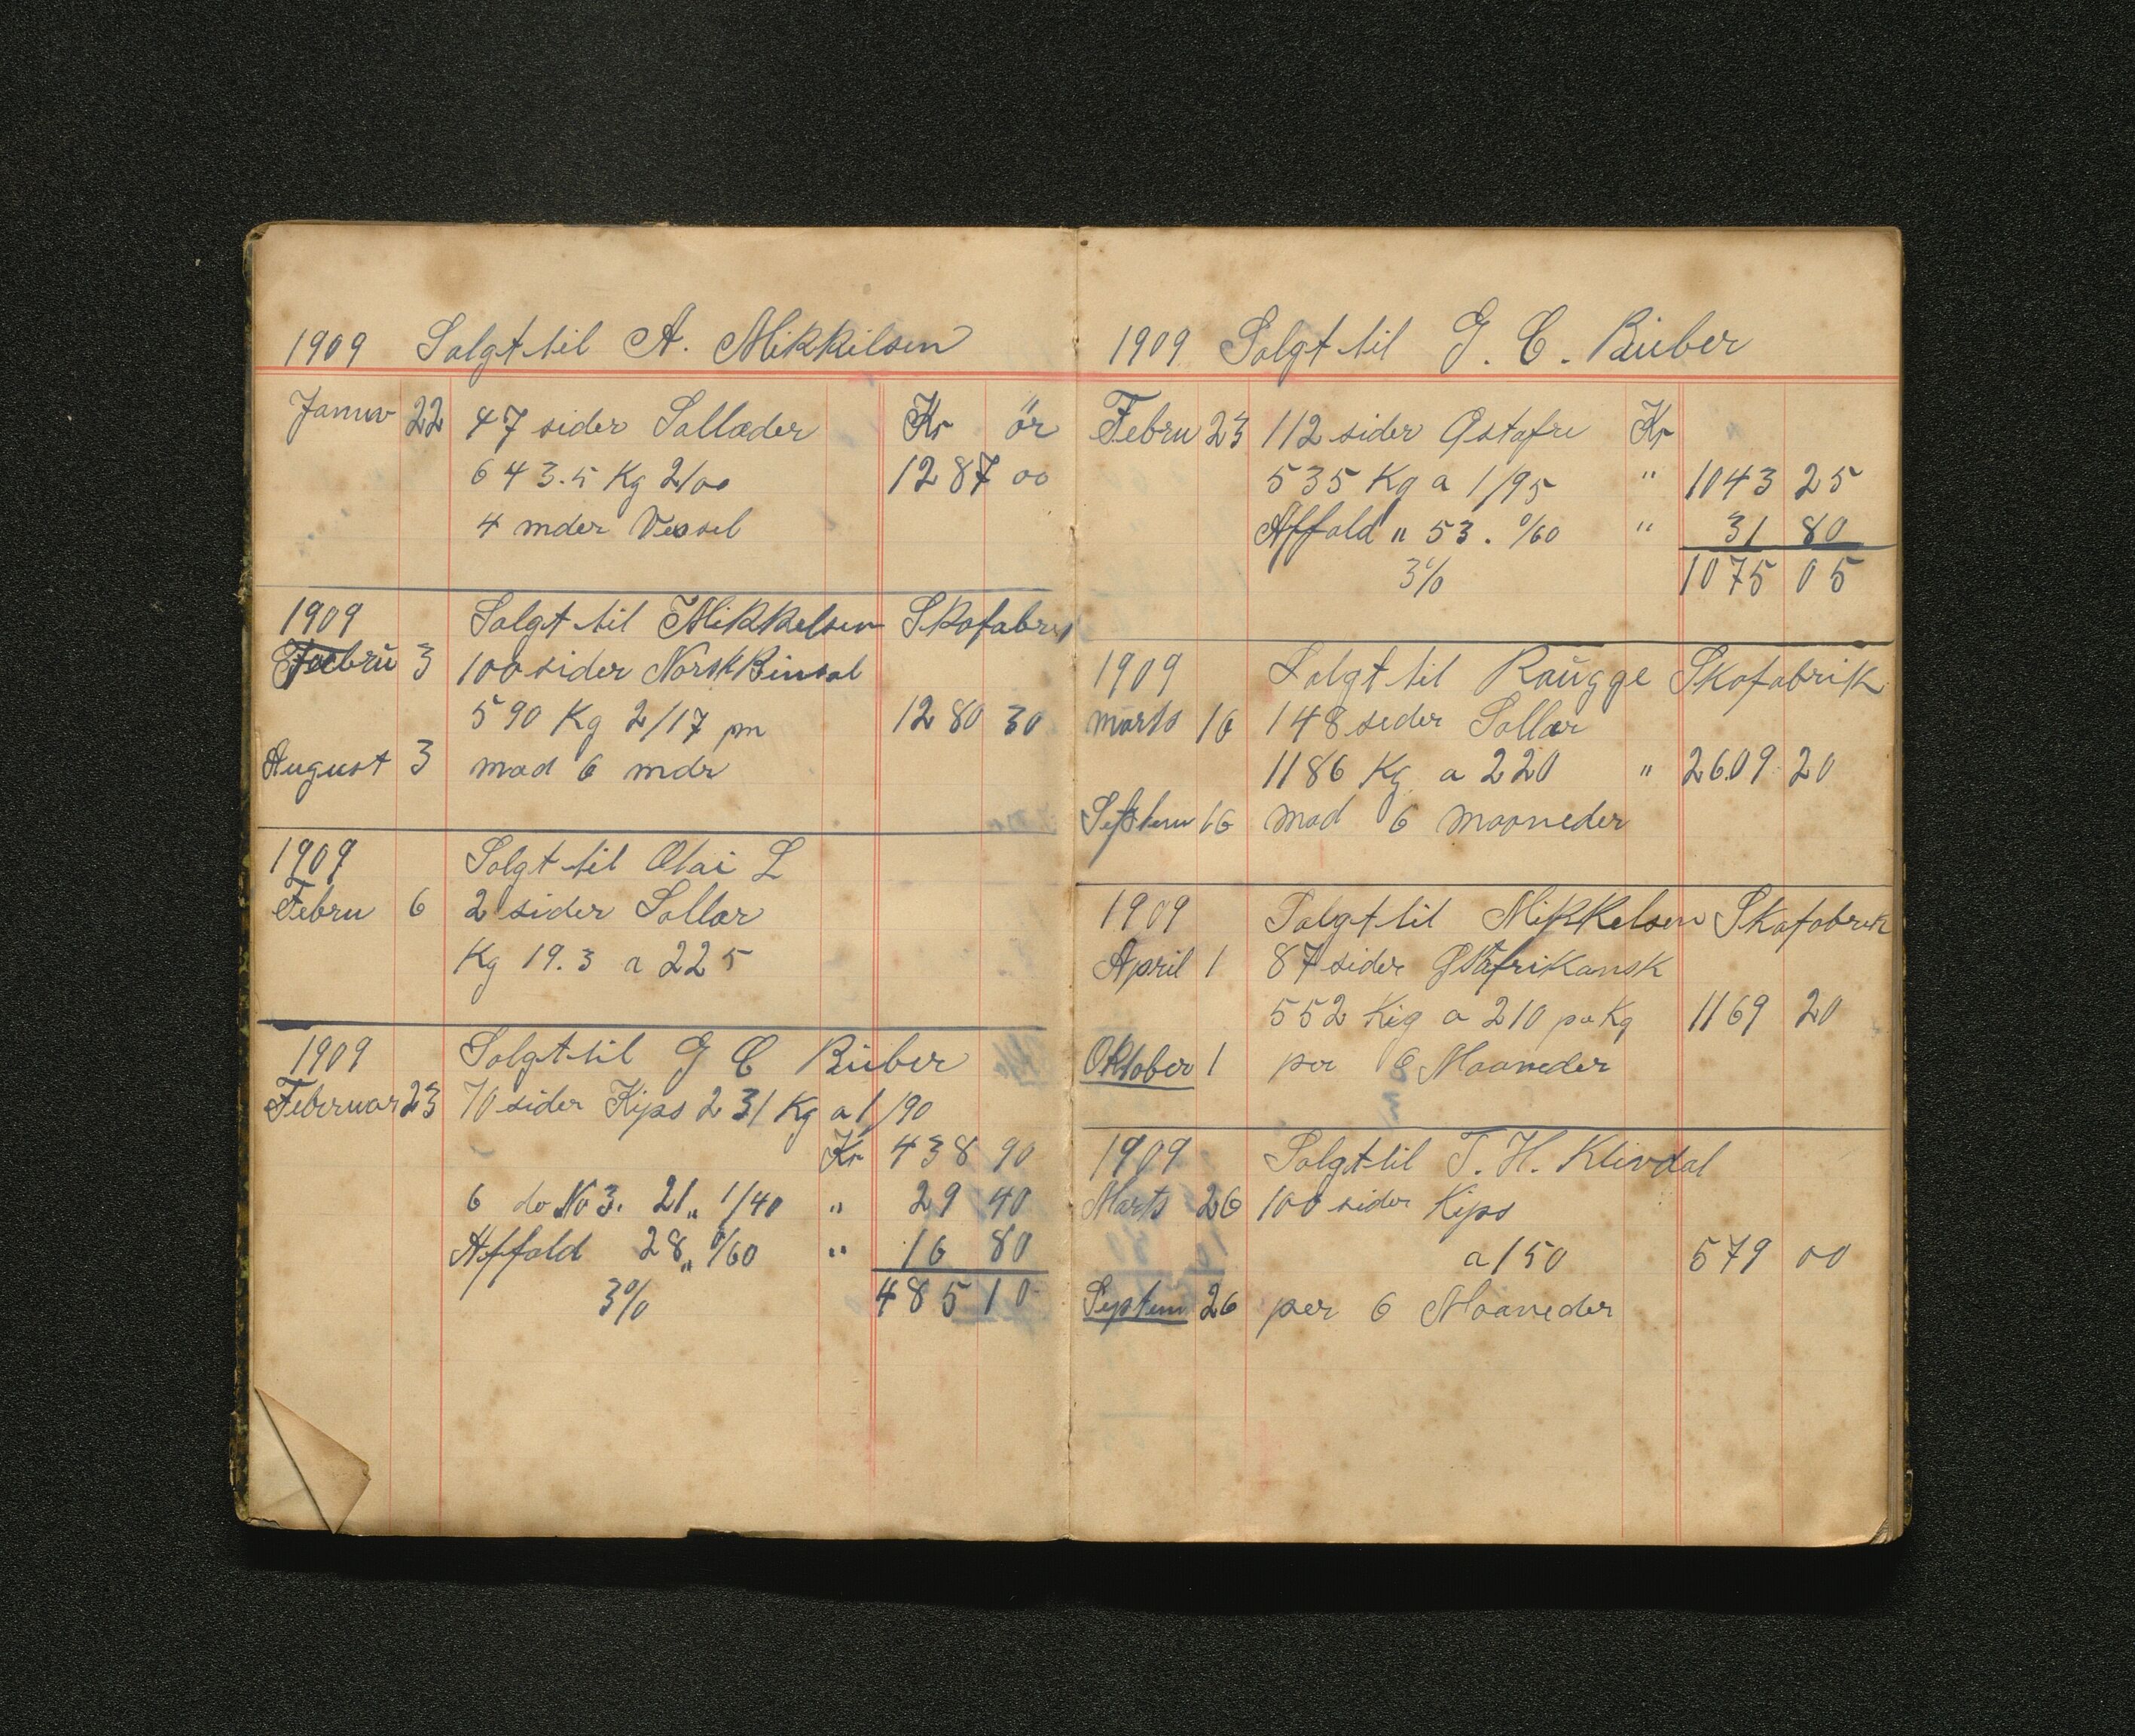 1909 Solgt til A. Mikkilsen
Januv 22 47 sider Sollader Kr ör
643.5 Kg 2/00 1287 00
4 mder Vexsel
1909 Solgt til Mikkelsen Skofabrik
Febru 3 100 sider Norsk Binsol
590 Kg 2/17 pm 1280 30
August 3 mad 6 mdr
1909 Solgt til Olai L
Febru 6 2 sider Sollær
Kg 19.3 a 225
1909 Solgt til G C Büber
Februar 23 70 sider Kips 231 Kg a 1/90
Kr 438 90
6 do No 3. 21 „ 1/40 " 29 40
Affald 28 „ 0/60 " 16 80
3% 485 10
1909 Solgt til G. C. Büber
Febru 23 112 sider Ostafre Kr
535 Kg a 1/95 " 1043 25
Affald " 53. 0/60 " 31 80
3% 1075 05
1909 Solgt til Raügge Skofabrik
marts 16 148 seder Sollær
1186 Kg a 220 " 2609 20
Septem 16 mod 6 maaneder
1909 Solgt til Mikkelsen Skofabrik
April 1 87 sider Ostafrikansk
552 Kig a 210 pr Kg 1169 20
Oktober 1 per 6 Maaneder
1909 Solgt til T. H. Klivdal
Marts 26 100 sider Kips
a 150 579 00
Septem 26 per 6 Maaneder